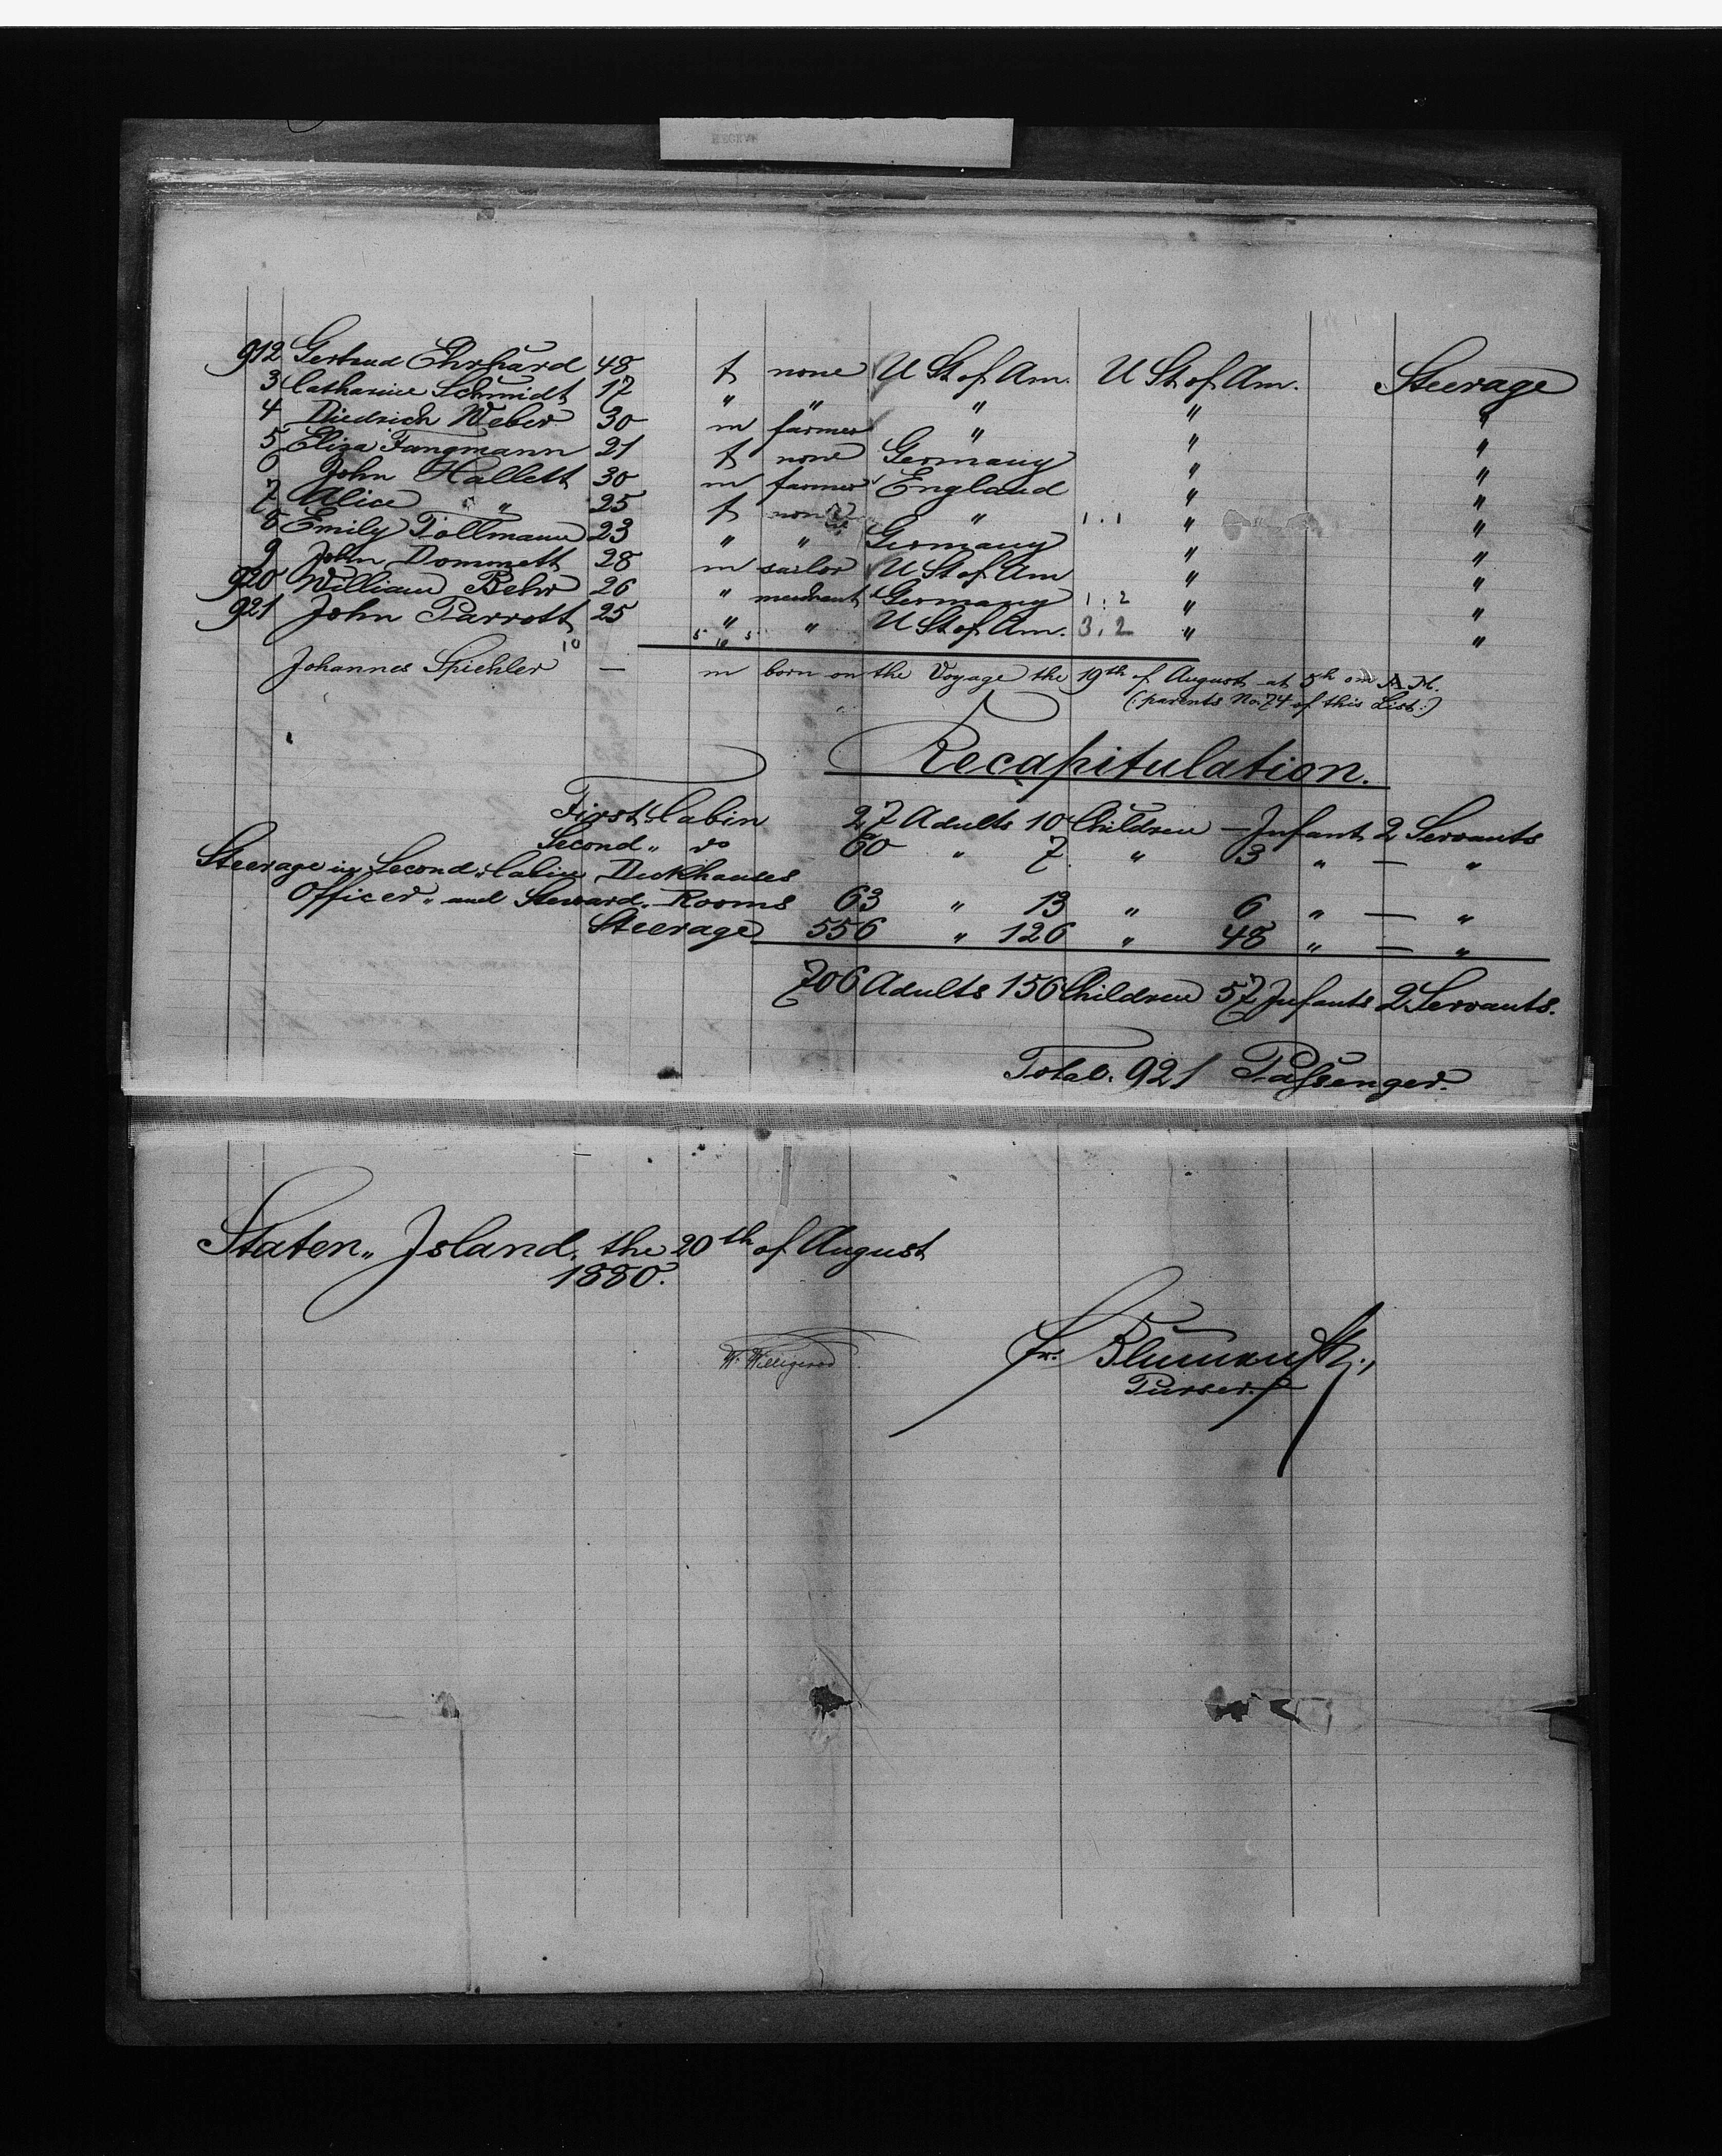 912 Gertrud Ehrhard 48 f none U St of Am. U St of Am. Steerage
3 Catharine Schmidt 17 " " " " "
4 Diedrich Weber 30 m farmer " " "
5 Eliza Fangmann 21 f none Germany " "
6 John Hallett 30 m farmer England " "
7 Alice " 25 f none " 1.1 " "
8 Emily Tollmann 23 " " Germany " "
9 John Dommett 28 m sailor U St of Am " "
920 William Behr 26 " merchant Germany 1.2 " "
921 John Parrott 25 " " U St of Am. 3.2 " "
10 5 10 5
Johannes Spiehler — m born on the Voyage the 19th of August at 5h A.M.
(: parents No. 74 of this List :)
Recapitulation.
First Cabin 27 Adults 10 Children — Infant 2 Servants
Second " do 60 " 7 " 3 " — "
Steerage in Second Cabin Deckhouses
Officer " and Steward. Rooms 63 " 13 " 6 " — "
Steerage 556 " 126 " 48 " — "
706 Adults 156 Children 57 Infants 2 Servants.
Total. 921 Passenger.
Staten " Island, the 20th of August
1880.
W. Willigerod
Fr.
Purser.